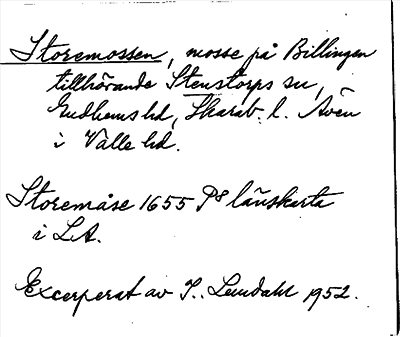 Storemossen, mosse på Billingen
tillhörande Stenstorps sn,
Gudhems hd, Skarab. l. Även
i Valle hd.
Storemåse 1655 P8 länskarta
i LA.
Excerperat av I. Lundahl 1952.